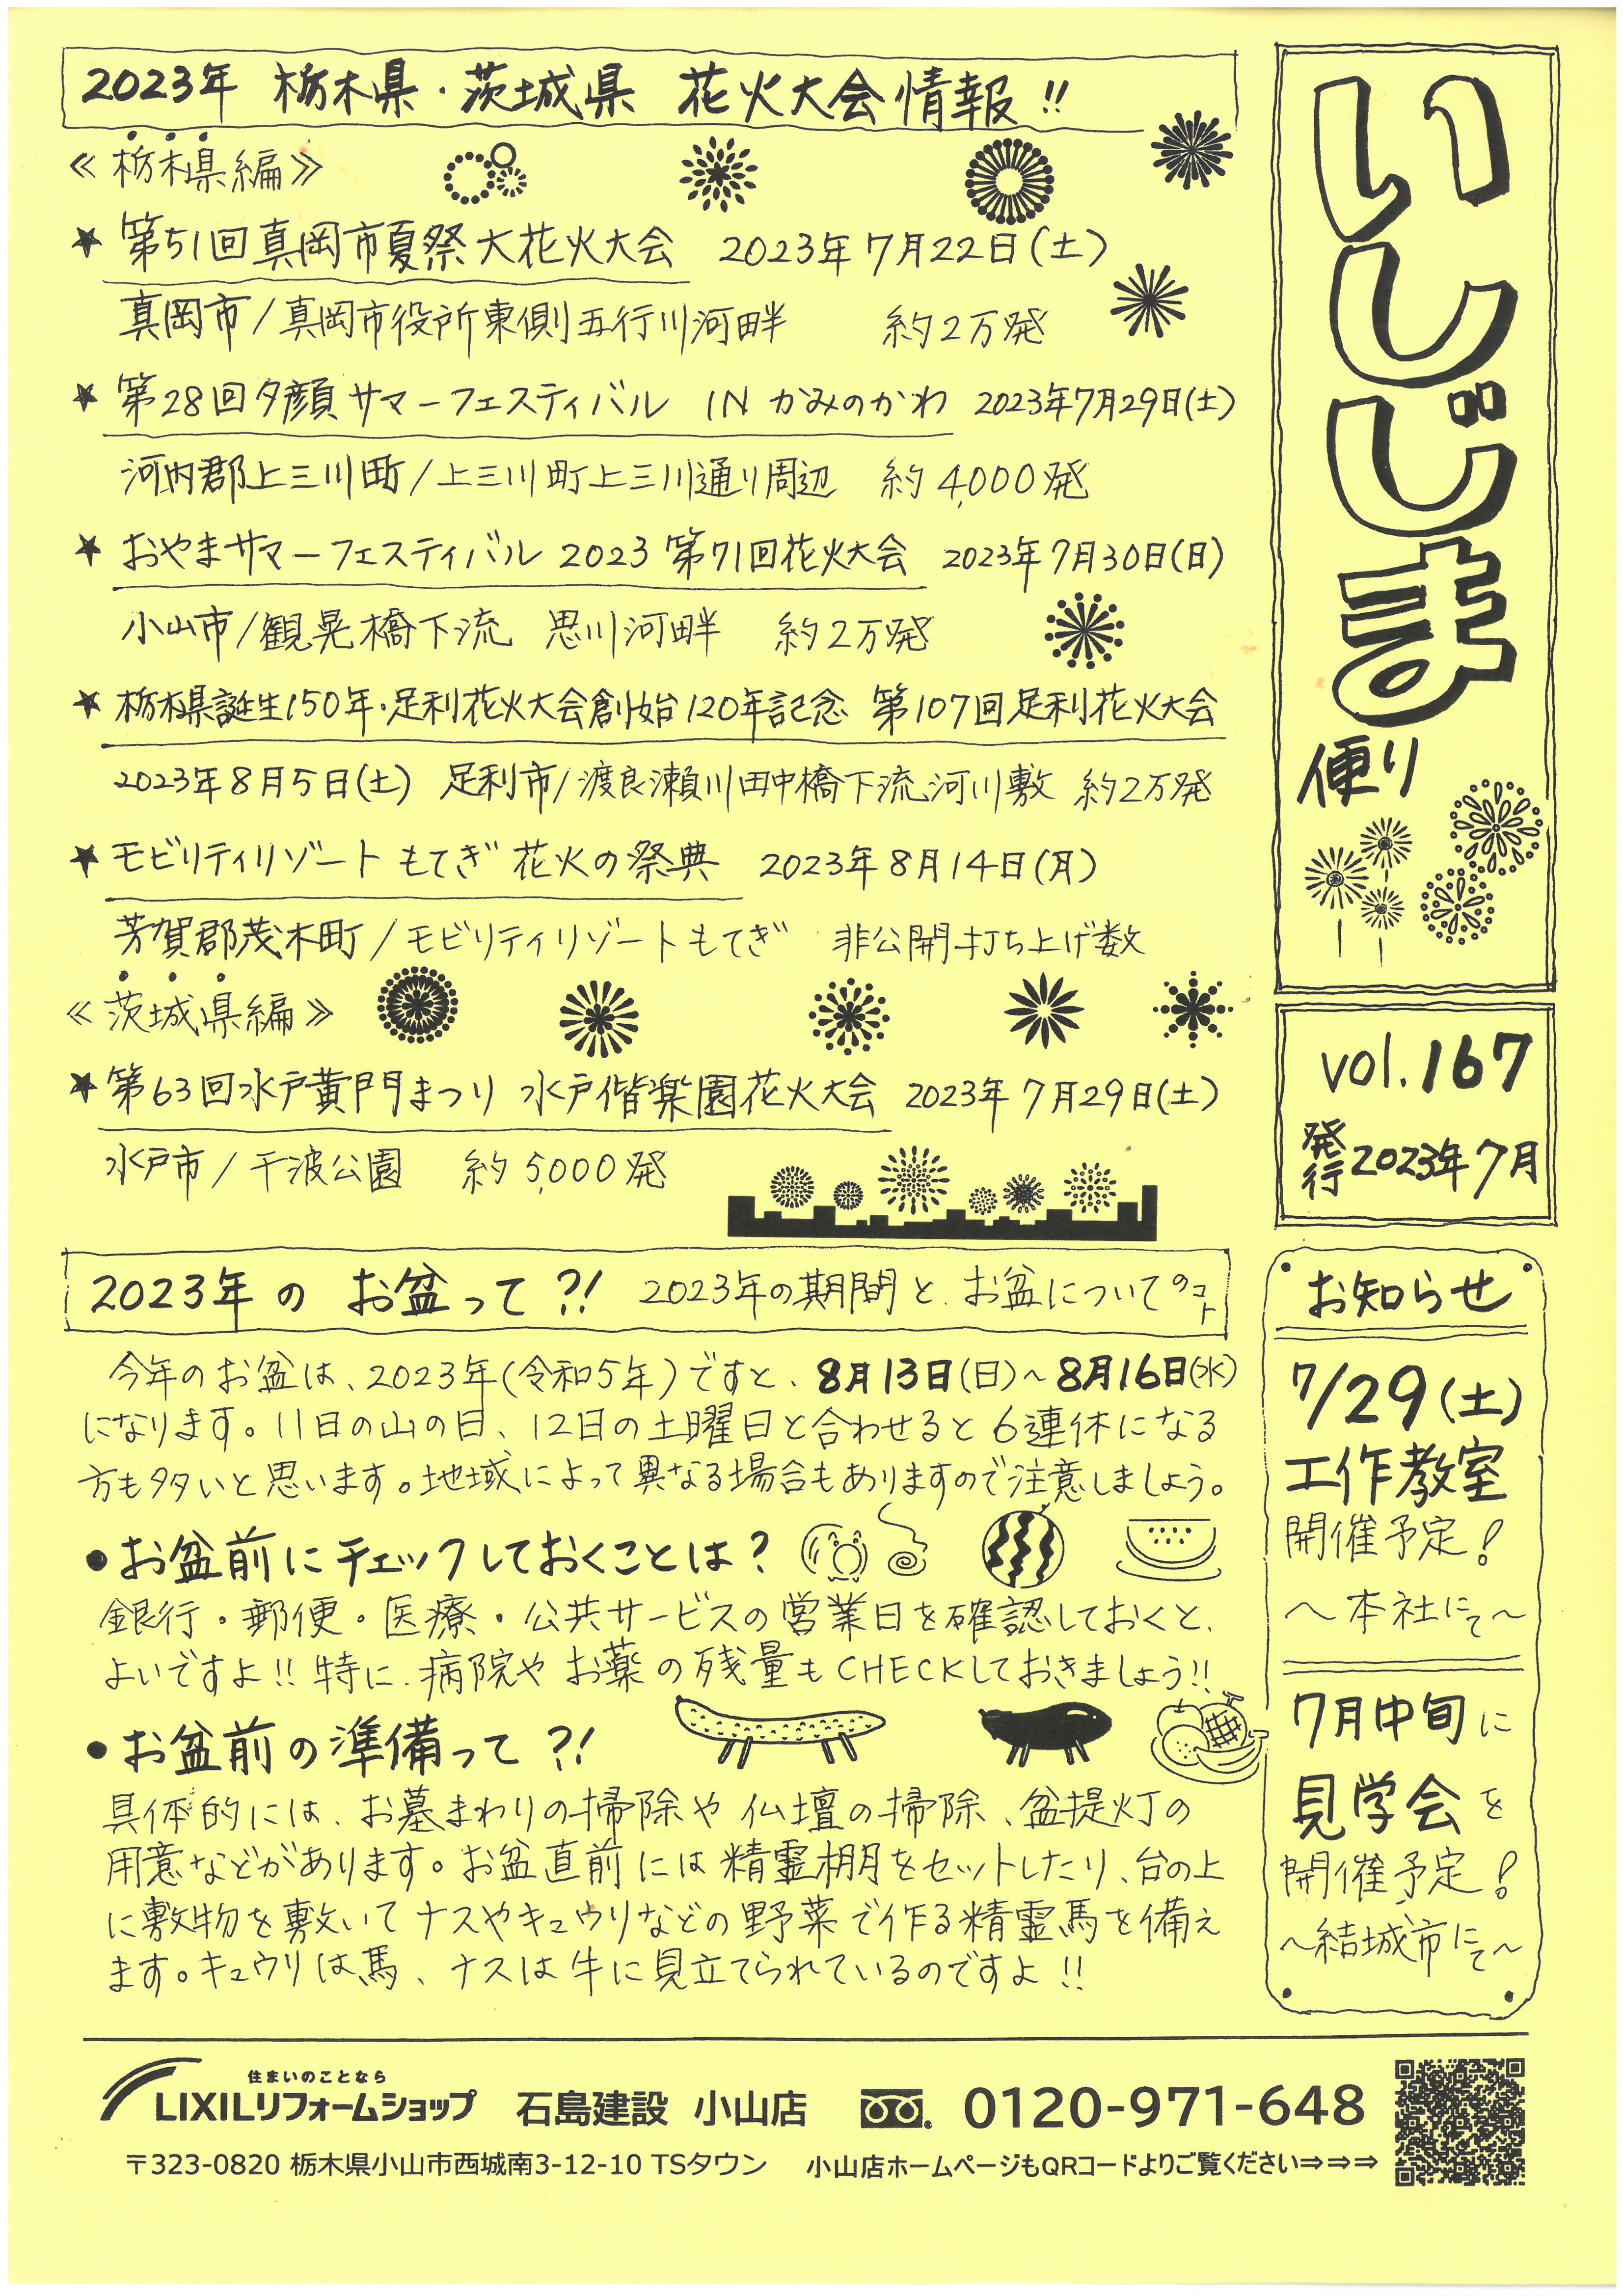 2023年 栃木県・茨城県 花火大会情報!!
≪栃木県編≫
★ 第51回真岡市夏祭大花火大会 2023年7月22日(土)
真岡市/真岡市役所東側五行川河畔 約2万発
★ 第28回夕顔サマーフェスティバル IN かみのかわ 2023年7月29日(土)
河内郡上三川町/上三川町上三川通り周辺 約4,000発
★ おやまサマーフェスティバル2023 第71回花火大会 2023年7月30日(日)
小山市/観晃橋下流 思川河畔 約2万発
★ 栃木県誕生150年・足利花火大会創始120年記念 第107回足利花火大会
2023年8月5日(土) 足利市/渡良瀬川田中橋下流河川敷 約2万発
★ モビリティリゾートもてぎ 花火の祭典 2023年8月14日(月)
芳賀郡茂木町/モビリティリゾートもてぎ 非公開打ち上げ数
≪茨城県編≫
★ 第63回水戸黄門まつり 水戸偕楽園花火大会 2023年7月29日(土)
水戸市/千波公園 約5,000発
いしじま
便り
vol.167
発行2023年7月
2023年の お盆って?! 2023年の期間と、お盆についてのコト
今年のお盆は、2023年(令和5年)ですと、8月13日(日)~8月16日(水)
になります。11日の山の日、12日の土曜日と合わせると6連休になる
方も多いと思います。地域によって異なる場合もありますので注意しましょう。
●お盆前にチェックしておくことは?
銀行・郵便・医療・公共サービスの営業日を確認しておくと、
よいですよ!!特に、病院やお薬の残量もCHECKしておきましょう!!
●お盆前の準備って?!
具体的には、お墓まわりの掃除や仏壇の掃除、盆提灯の
用意などがあります。お盆直前には精霊棚をセットしたり、台の上
に敷物を敷いてナスやキュウリなどの野菜で作る精霊馬を備え
ます。キュウリは馬、ナスは牛に見立てられているのですよ!!
お知らせ
7/29(土)
工作教室
開催予定!
~本社にて~
7月中旬に
見学会を
開催予定!
~結城市にて~
住まいのことなら
LIXILリフォームショップ 石島建設 小山店 0120-971-648
〒323-0820 栃木県小山市西城南3-12-10 TSタウン 小山店ホームページもQRコードよりご覧ください⇒⇒⇒